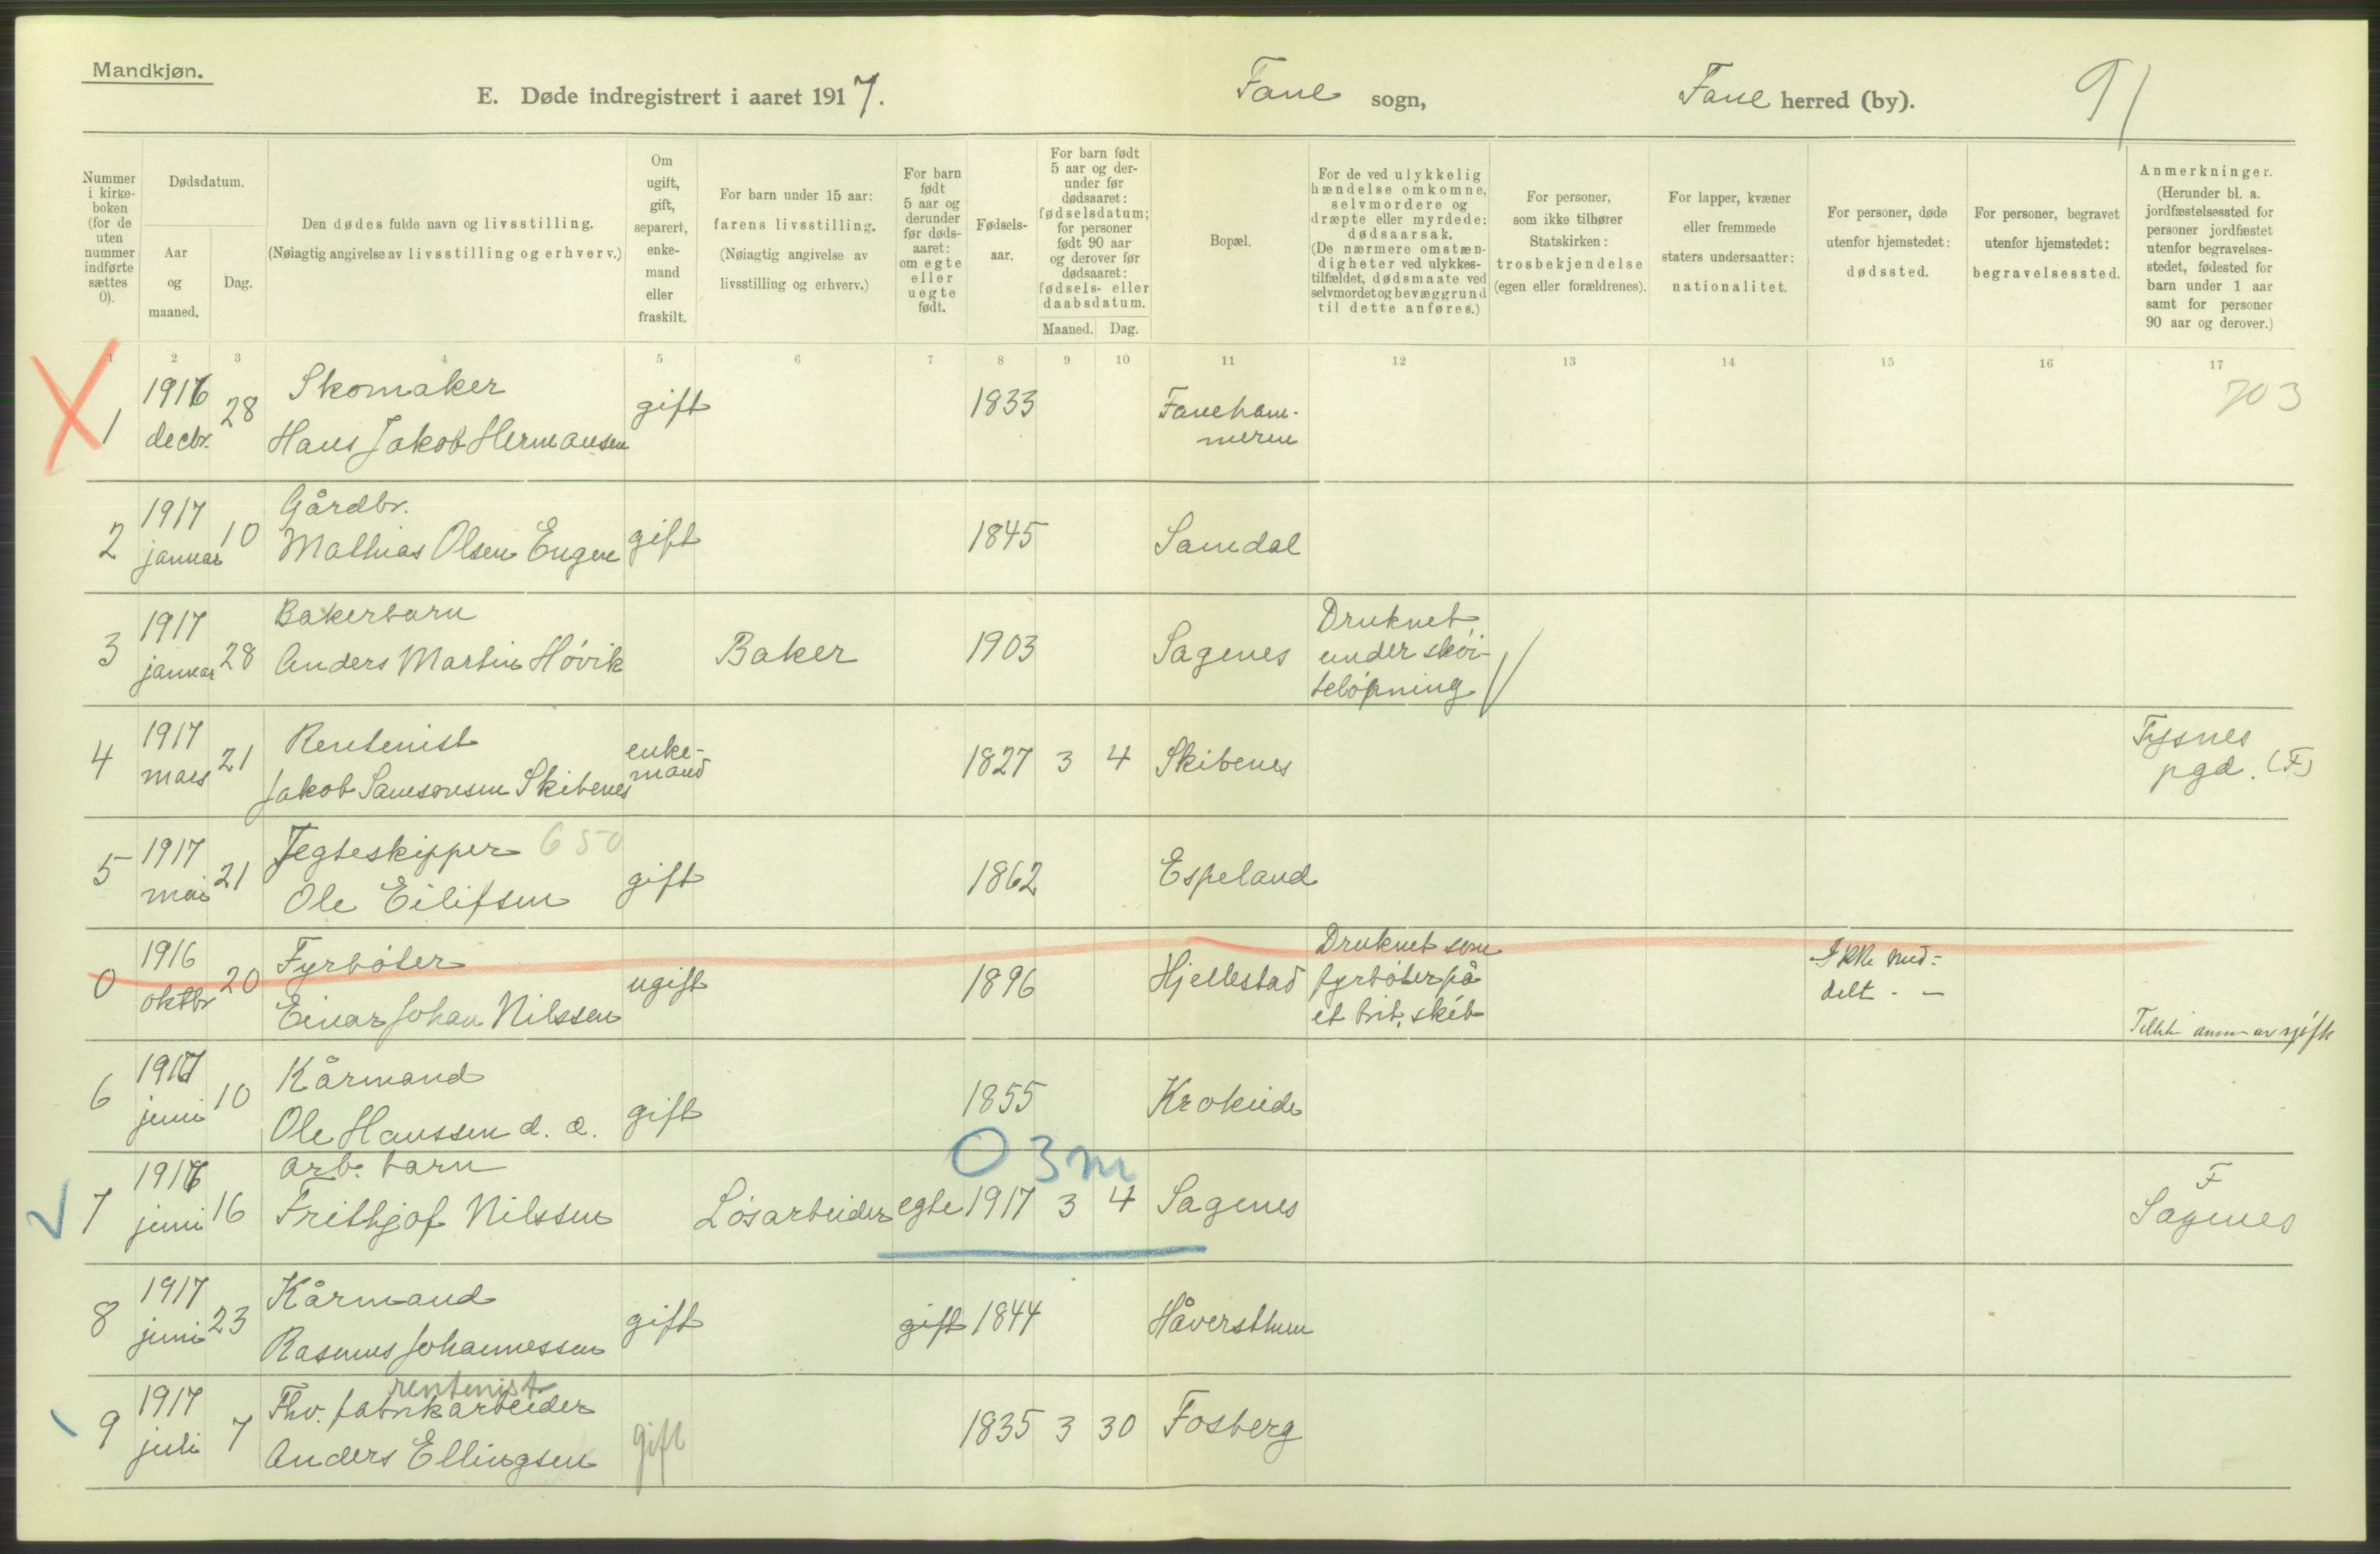 Mandkjøn.
E. Døde indregistrert i aaret 1917. Fane sogn, Fane herred (by). 91
Nummer i kirkeboken (for de uten nummer indførte sættes 0).
Dødsdatum.
Aar og maaned.
Dag.
Den dødes fulde navn og livsstilling.
(Nøiagtig angivelse av livsstilling og erhverv.)
Om ugift, gift, separert, enkemand eller fraskilt.
For barn under 15 aar:
farens livsstilling.
(Nøiagtig angivelse av livsstilling og erhverv.)
For barn født 5 aar og derunder før dødsaaret: om egte eller uegte født.
Fødselsaar.
For barn født 5 aar og derunder før dødsaaret: fødselsdatum; for personer født 90 aar og derover før dødsaaret: fødsels- eller daabsdatum.
Maaned. Dag.
Bopæl.
For de ved ulykkelig hændelse omkomne, selvmordere og dræpte eller myrdede: dødsaarsak. (De nærmere omstændigheter ved ulykkestilfældet, dødsmaate ved selvmordet og bevæggrund til dette anføres.)
For personer, som ikke tilhører Statskirken: trosbekjendelse (egen eller forældrenes).
For lapper, kvæner eller fremmede staters undersaatter: nationalitet.
For personer, døde utenfor hjemstedet: dødssted.
For personer, begravet utenfor hjemstedet: begravelsessted.
Anmerkninger.
(Herunder bl. a. jordfæstelsessted for personer jordfæstet utenfor begravelsesstedet, fødested for barn under 1 aar samt for personer 90 aar og derover.)
1 2 3 4 5 6 7 8 9 10 11 12 13 14 15 16 17
1 1916 decbr. 28 Skomaker
Hans Jakob Hermansen gift 1833 Fanehammeren 703
2 1917 januar 10 Gårdbr.
Mathias Olsen Engen gift 1845 Samdal
3 1917 januar 28 Bakerbarn
Anders Martin Høvik Baker 1903 Sagenes Druknet under skøiteløpning
4 1917 mars 21 Rentenist
Jakob Samsonsen Skibenes enkemand 1827 3 4 Skibenes Tysnes pgd. (F)
5 1917 mai 21 Jegteskipper 650
Ole Eilifsen gift 1862 Espeland
0 1916 oktbr 20 Fyrbøter
Einar Johan Nilssen ugift 1896 Hjellestad Druknet som fyrbøter på et brit. skib Ikke meddelt - -
6 1917 juni 10 Kårmand
Ole Hanssen d. æ. gift 1855 Krokeide
0 3 m
7 1917 juni 16 arb. barn
Frithjof Nilssen Løsarbeider egte 1917 3 4 Sagenes F Sagenes
8 1917 juni 23 Kårmand
Rasmus Johannessen gift gift 1844 Håversthun
rentenist
9 1917 juli 7 Fhv. fabrikarbeider
Anders Ellingsen gift 1835 3 30 Fosberg